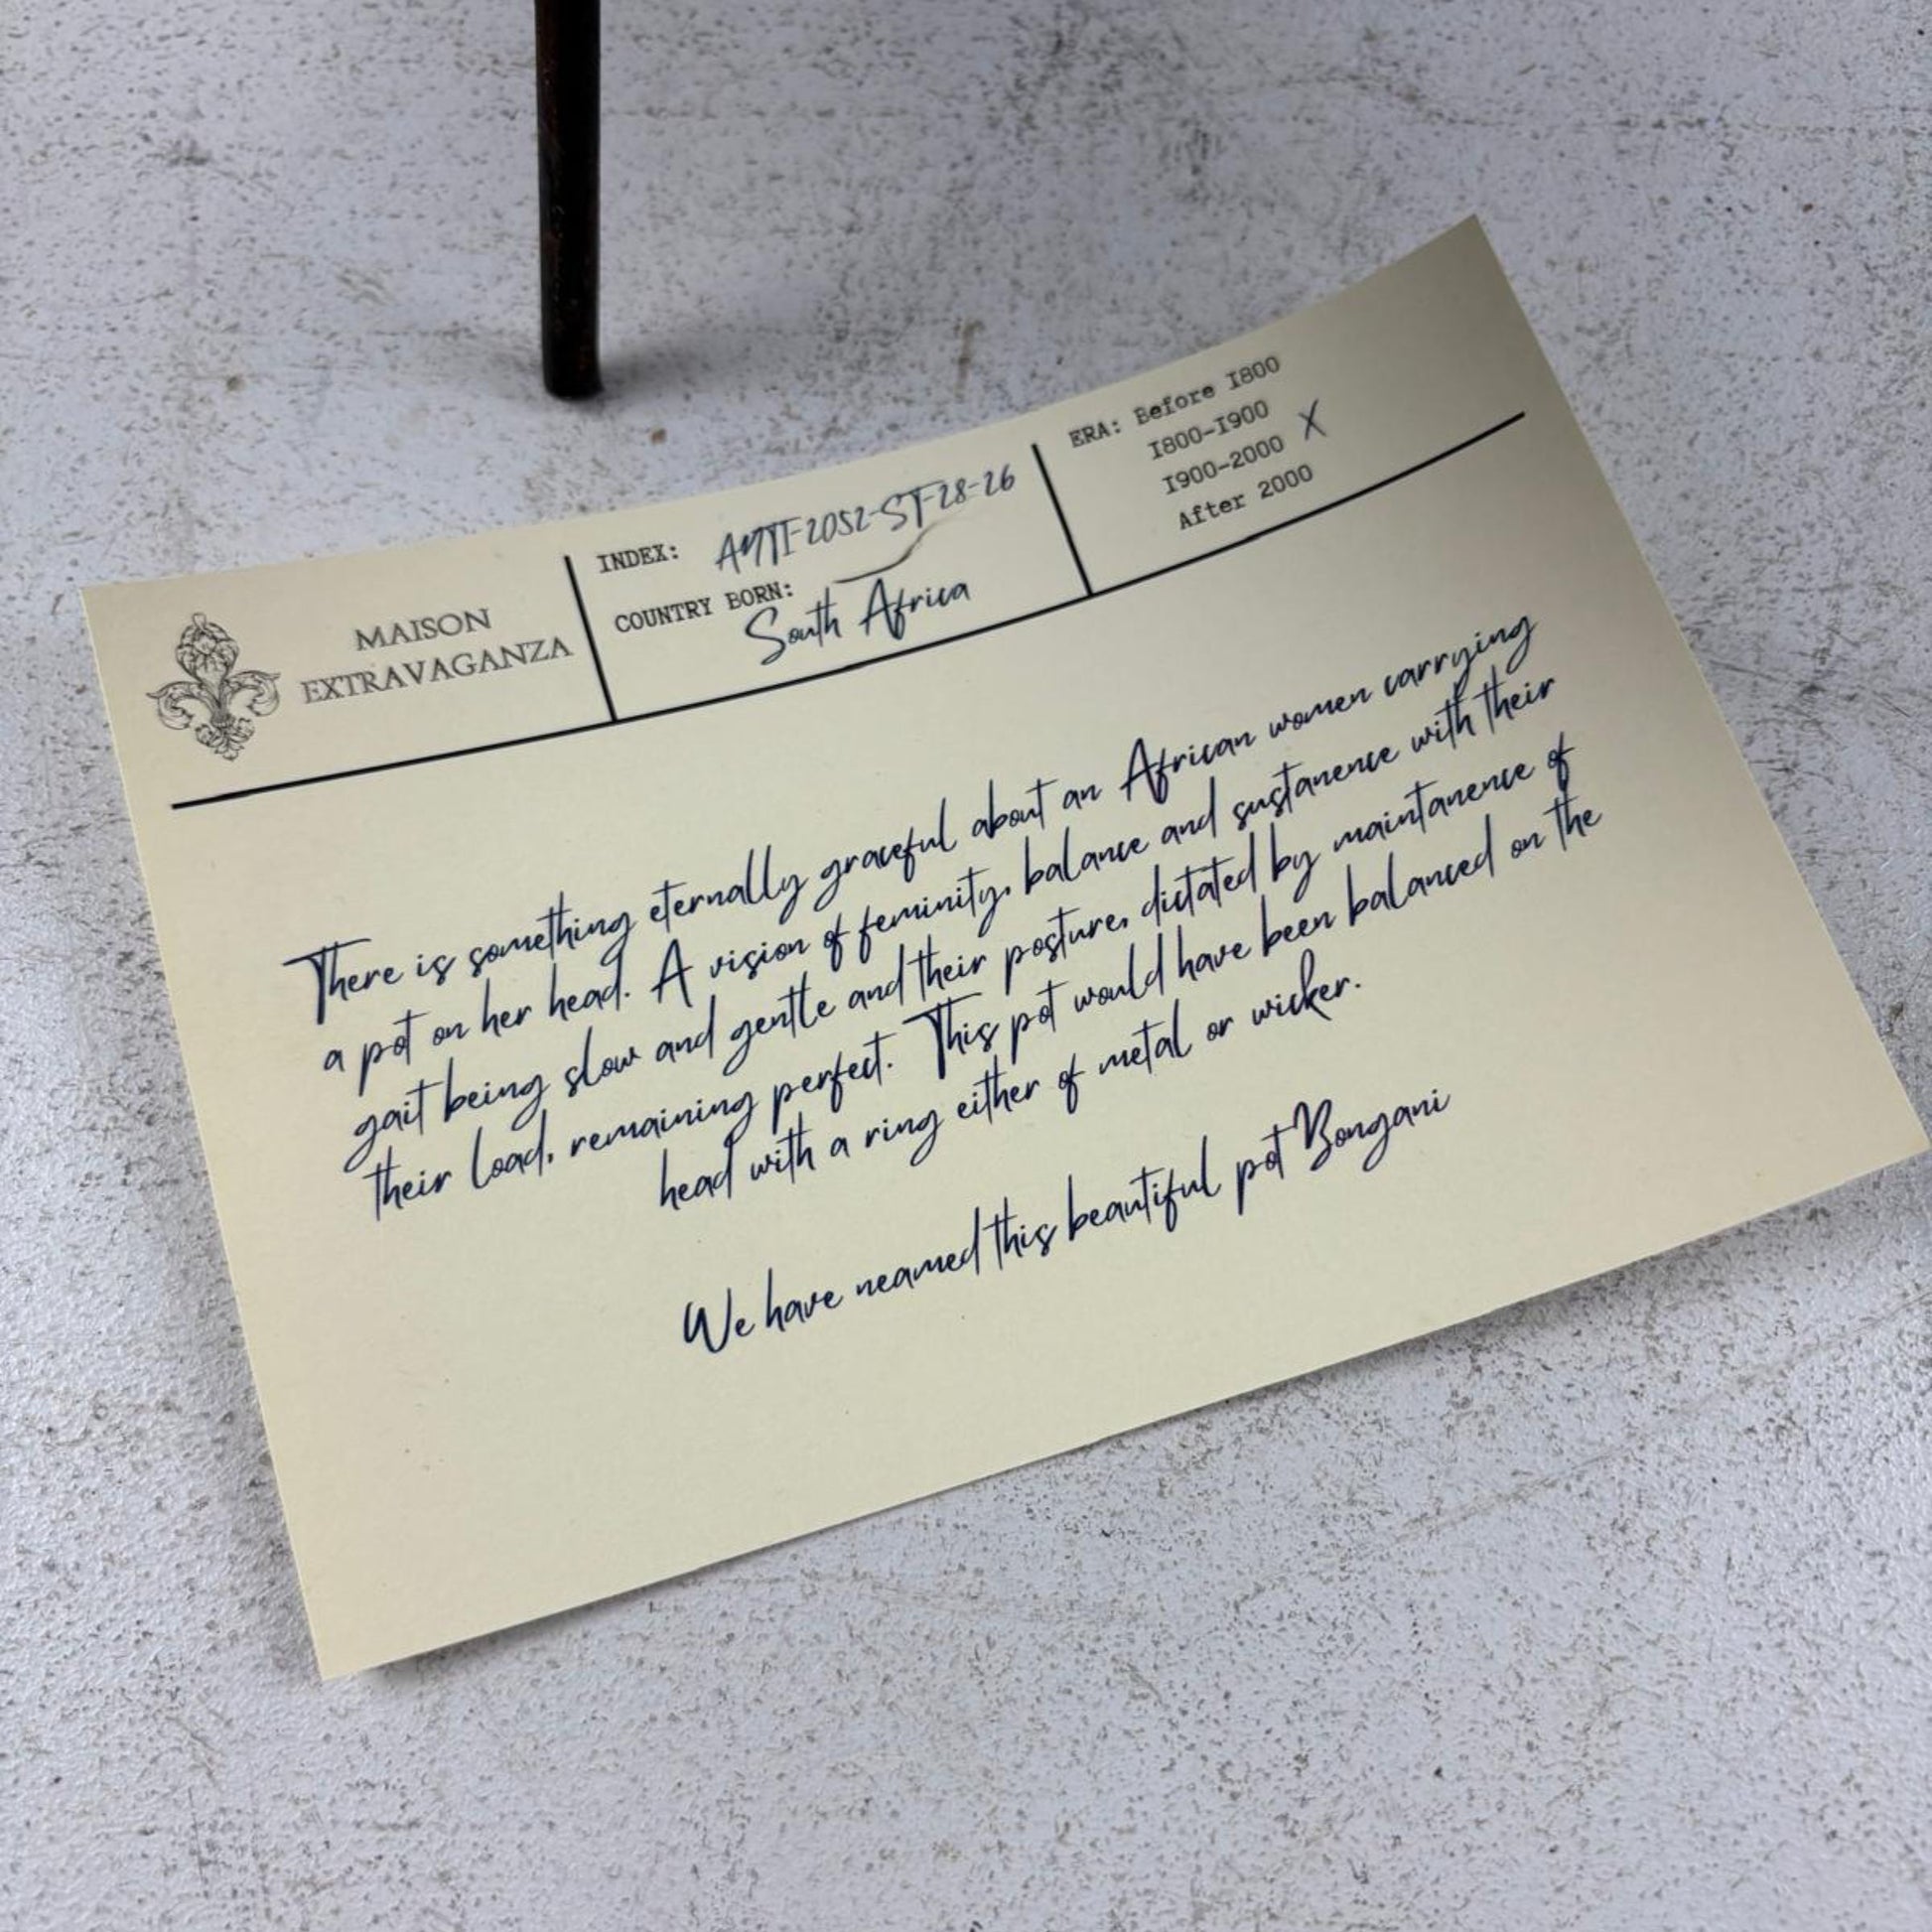 MAISON
EXTRAVAGANZA
INDEX: 2052-ST-28-26
COUNTRY BORN:
South Africa
ERA: Before 1800
1800-1900
1900-2000 X
After 2000
There is something eternally graceful about an African women carrying
a pot on her head. A vision of feminity, balance and sustanence with their
gait being slow and gentle and their posture, dictated by maintanence of
their load, remaining perfect. This pot would have been balanced on the
head with a ring either of metal or wicker.
We have neamed this beautiful pot Bongani